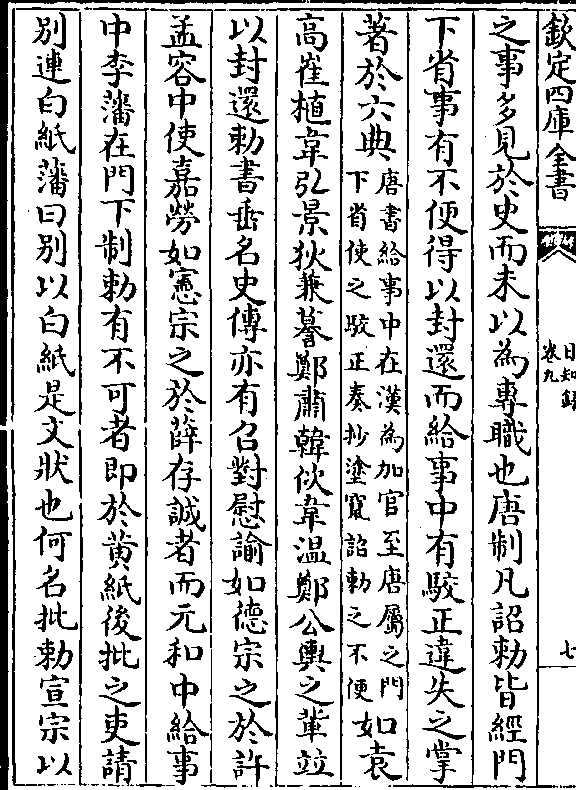 欽定四庫全書
日知錄
卷九
七
之事多見於史而未以為專職也唐制凡詔勅皆經門
下省事有不便得以封還而給事中有駮正違失之掌
著於六典唐書給事中在漢為加官至唐屬之門
下省使之駮正奏抄塗竄詔勅之不便如袁
高崔植韋弘景狄兼謩鄭肅韓佽韋温鄭公輿之軰竝
以封還勅書垂名史傳亦有召對慰諭如德宗之於許
孟容中使嘉勞如憲宗之於薛存誠者而元和中給事
中李藩在門下制勅有不可者即於黄紙後批之吏請
別連白紙藩曰別以白紙是文狀也何名批勅宣宗以